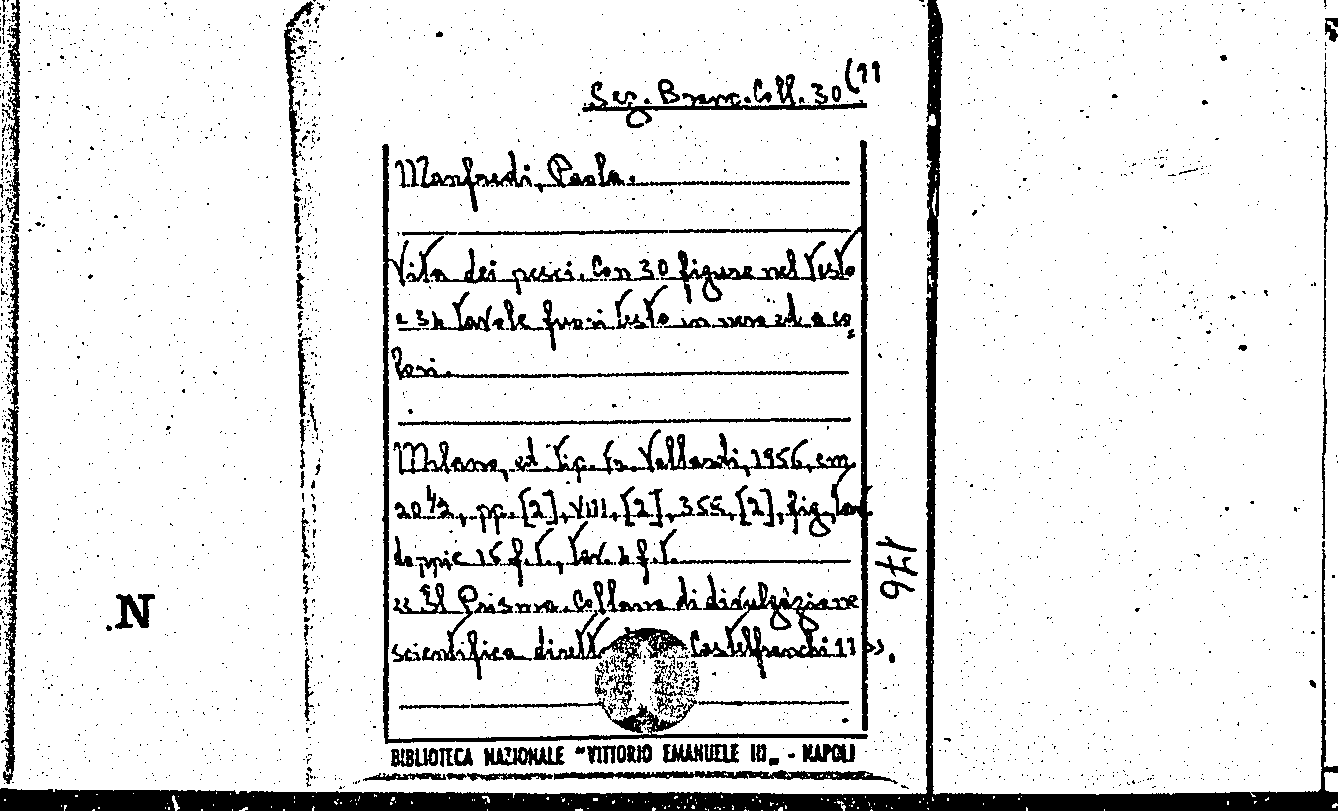 Sez. Branc. Coll. 30 (11
Manfredi, Paola.
Vita dei pesci. Con 30 figure nel testo
e 34 tavole fuori testo in nero ed a co-
lori.
Milano, ed. tip. fr. Vallardi, 1956, cm.
20 1/2, pp. [2], VIII, [2], 355, [2], fig., tav.
doppie 15 f. t., tav. 4 f. t.
<< Il Prisma. Collana di divulgazione
scientifica dirett Castelfranchi 11 >>.
176
N
BIBLIOTECA NAZIONALE "VITTORIO EMANUELE III„ - NAPOLI